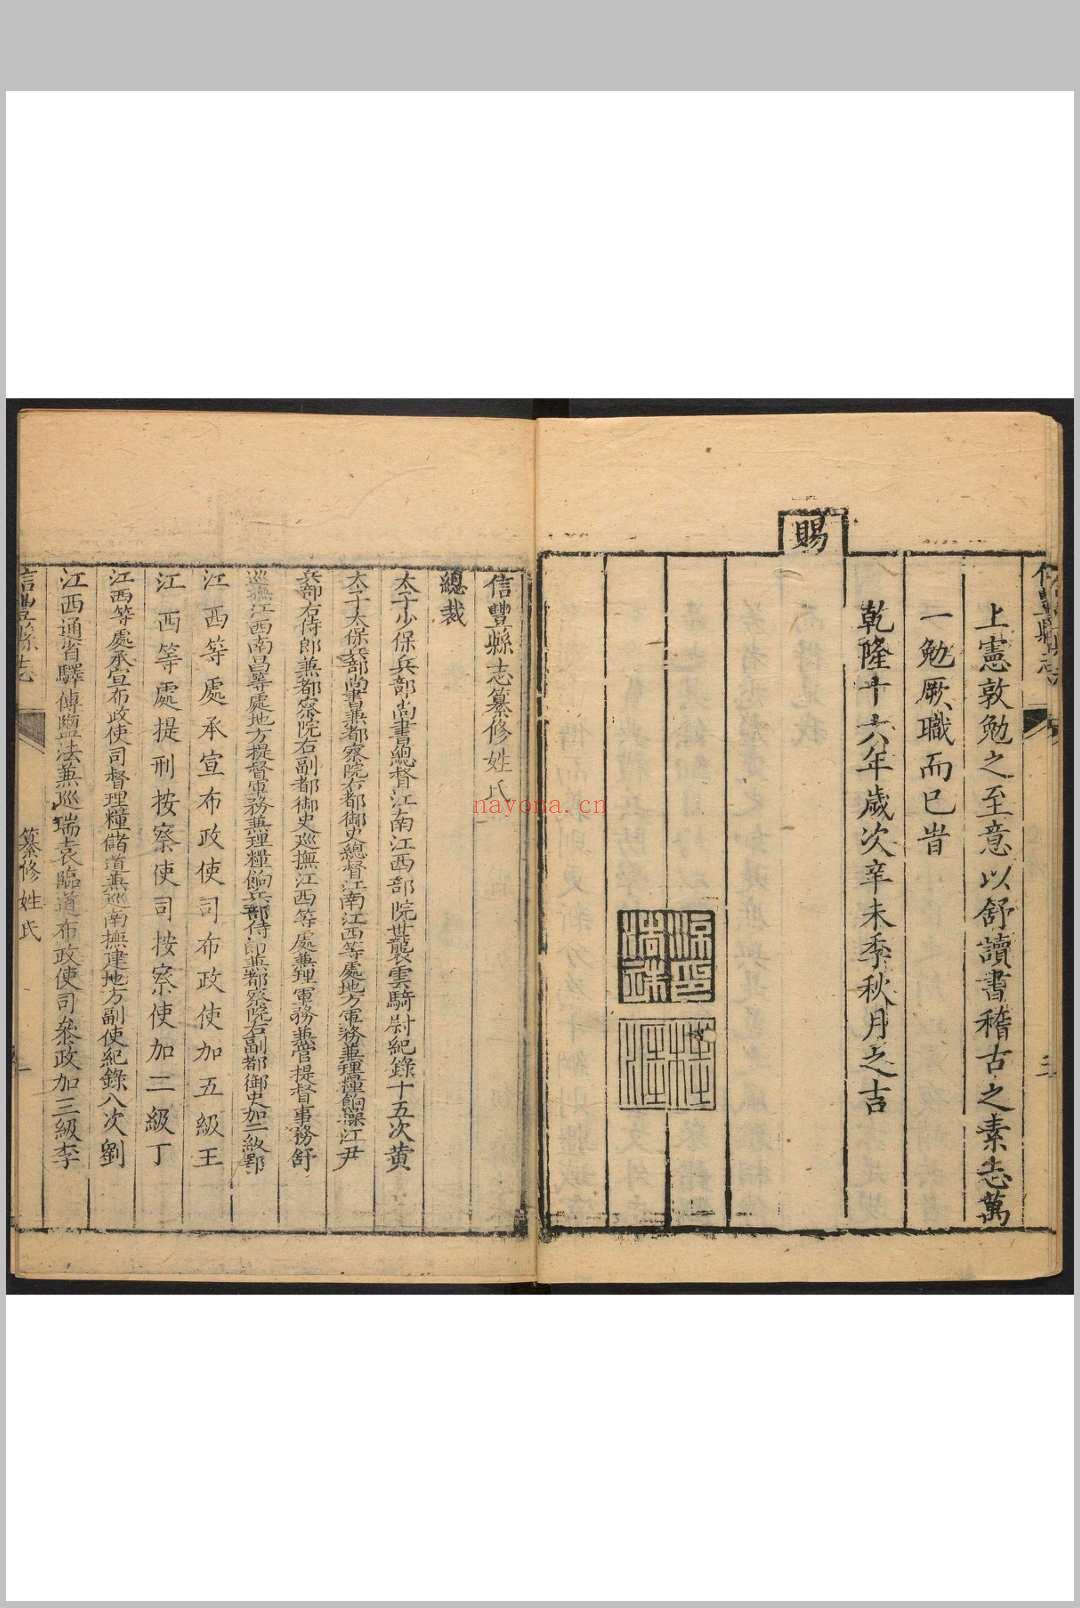 上憲敦勉之至意以舒讀書稽古之素志萬
一勉厥職而已旹
乾隆十六年歲次辛未季秋月之吉
賜
信豐縣志纂修姓氏
總裁
太子少保兵部尚書總督江南江西部院世襲雲騎尉紀錄十五次黃
太子太保兵部尚書兼都察院右都御史總督江南江西等處地方軍務兼理糧餉操江尹
兵部右侍郎兼都察院右副都御史巡撫江西等處兼理軍務兼管提督事務舒
巡撫江西南昌等處地方提督軍務兼理糧餉兵部侍郎兼都察院右副都御史加二級鄂
江西等處承宣布政使司布政使加五級王
江西等處提刑按察使司按察使加二級丁
江西等處承宣布政使司督理糧儲道兼巡南撫建地方副使紀錄八次劉
江西通省驛傳鹽法兼巡瑞袁臨道布政使司叅政加三級李
信豐縣志
纂修姓氏
nayona.cn